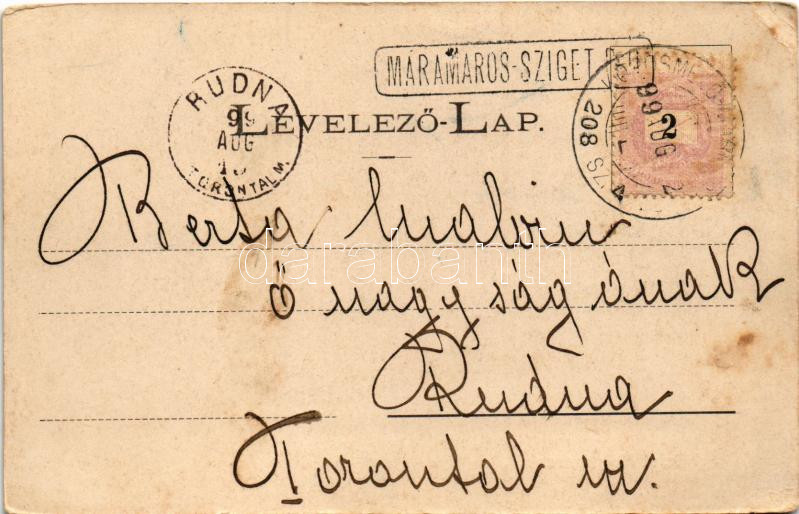 MÁRAMAROS-SZIGET
RUDNA
99
AUG
TORONTAL M.
LEVELEZŐ-LAP.
2
99 AUG 2
208 SZ.
Berta Malvin
ő nagyságának
Rudna
Torontál m.
darabanth